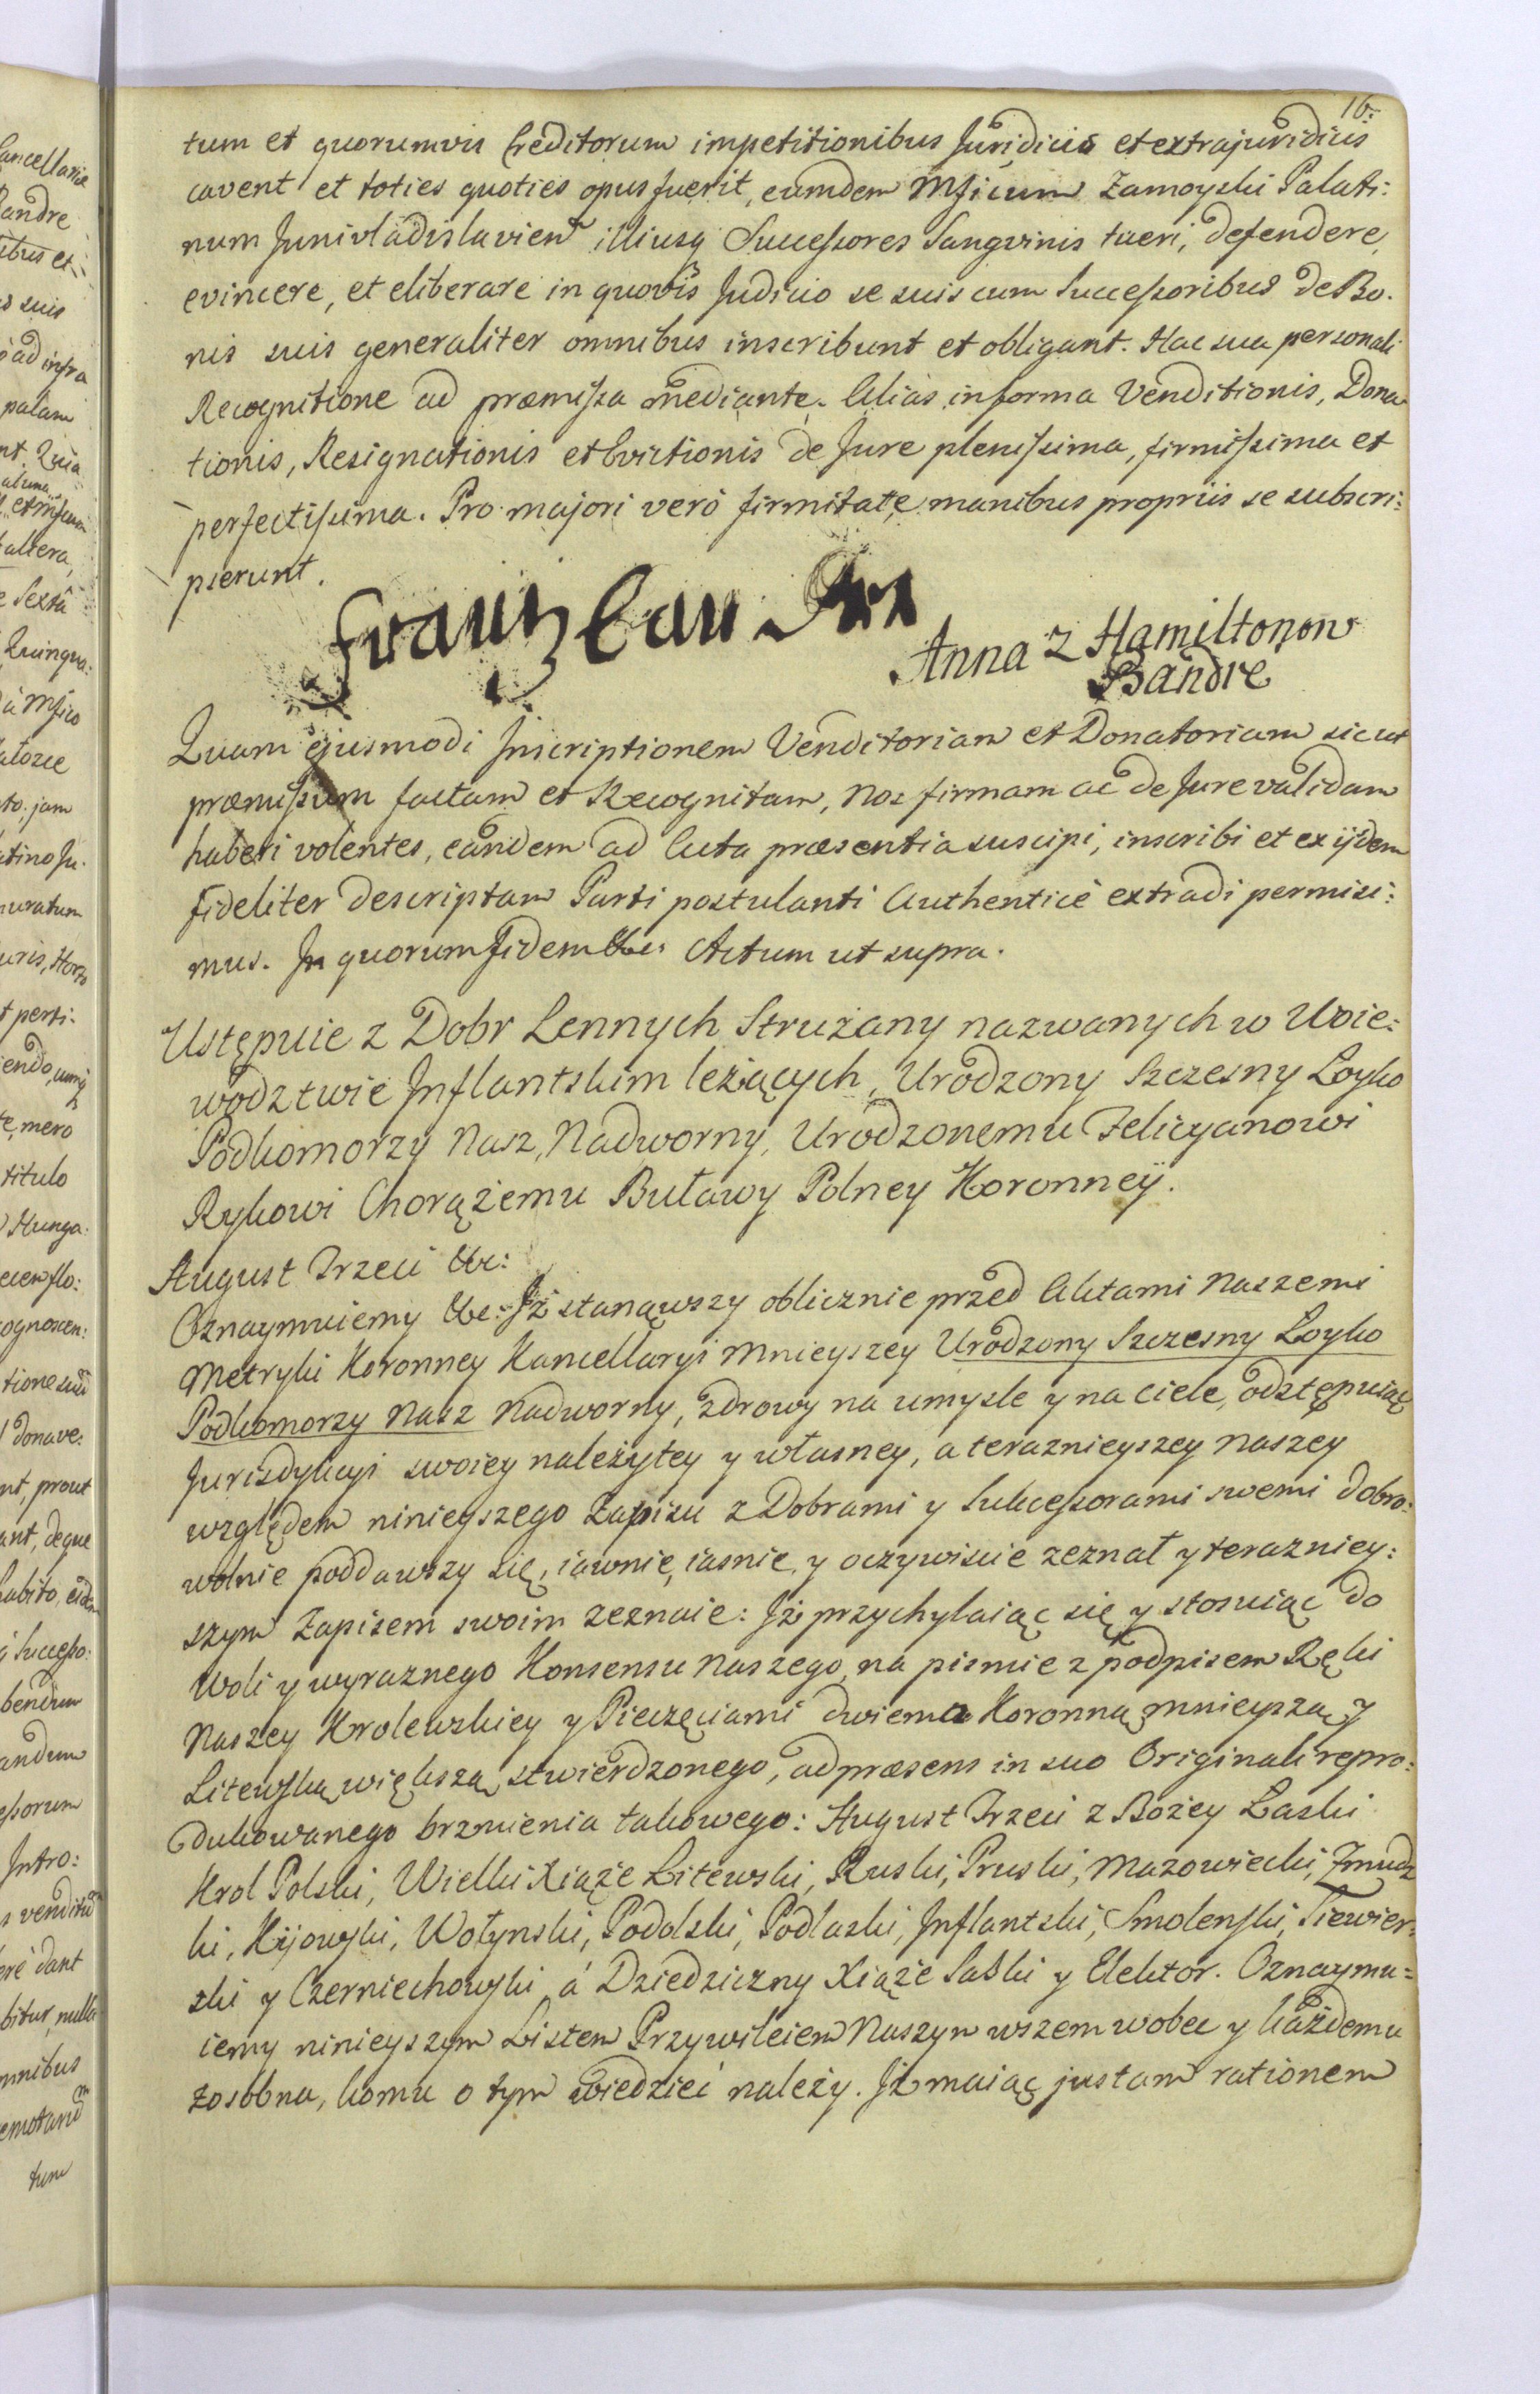 16.
tum et quorumvis Creditorum impetitionibus Juridicis et extrajuridicis
cavent et toties quoties opus fuerit, eumdem Mficum Zamoyski Palati:
num Junivladislavien illiusq Successores Sangvinis tueri, defendere,
evincere, et eliberare in quovis Judicio se suis cum Successoribus de Bo.
nis suis generaliter omnibus inscribunt et obligant. Hac sua personali
Recognitione ad præmissa mediante. Alias in forma Venditionis, Dona
tionis, Resignationis et Evictionis de Jure plenissima, firmissima et
perfectissima. Pro majori veró firmitate manibus propriis se subscri:
pserunt.
Anna z Hamiltonow
Bandre
Quam ejusmodi Inscriptionem Venditoriam et Donatoriam sicut
præmissum factam et Recognitam, Nos firmam ac de Jure validam
haberi volentes, eandem ad Acta præsentia suscipi, inscribi et ex ijsdem
fideliter descriptam Parti postulanti Authenticé extradi permisi:
mus. In quorum fidem &c: Actum ut supra.
Ustępuie z Dobr Lennych Strużany nazwanych w Woie:
wodztwie Inflantskim leżących, Urodzony Szczesny Łoyko
Podkomorzy Nasz, Nadworny, Urodzonemu Felicyanowi
Rykowi Chorążemu Buławy Polney Koronney.
August Trzeci &c:
Oznaymuiemy &c: Jż stanąwszy oblicznie przed Aktami Naszemi
Metryki Koronney Kancellaryi Mnieyszey Urodzony Szczesny Łoyko
Podkomorzy Nasz Nadworny, zdrowy na umysle y na ciele, odstępuiąc
Jurisdykcyi swoiey należytey y własney, a teraznieyszey Naszey
względem ninieyszego Zapisu z Dobrami y Sukcessorami swemi dobro:
wolnie poddawszy się, iawnie, iasnie, y oczywiscie zeznał y terazniey:
szym Zapisem swoim zeznaie: Jż przychylaiąc się y stosuiąc do
Woli y wyraznego Konsensu Naszego, na pismie z podpisem Ręki
Naszey Krolewskiey y Pieczęciami dwiema Koronną mnieyszą y
Litewską większą stwierdzonego, ad præsens in suo Originali repro:
dukowanego brzmienia takowego: August Trzeci z Bożey Łaski
Krol Polski, Wielki Xiąże Litewski, Ruski, Pruski, Mazowiecki, Zmudz
ki, Kijowski, Wołynski, Podolski, Podlaski, Inflantski, Smolenski, Siewier:
ski y Czerniechowski, á Dziedziczny Xiąże Saski y Elektor. Oznaymu=
iemy ninieyszym Listem Przywileiem Naszym wszem wobec y każdemu
zosobna, komu o tym wiedzieć należy. Jż maiąc justam rationem